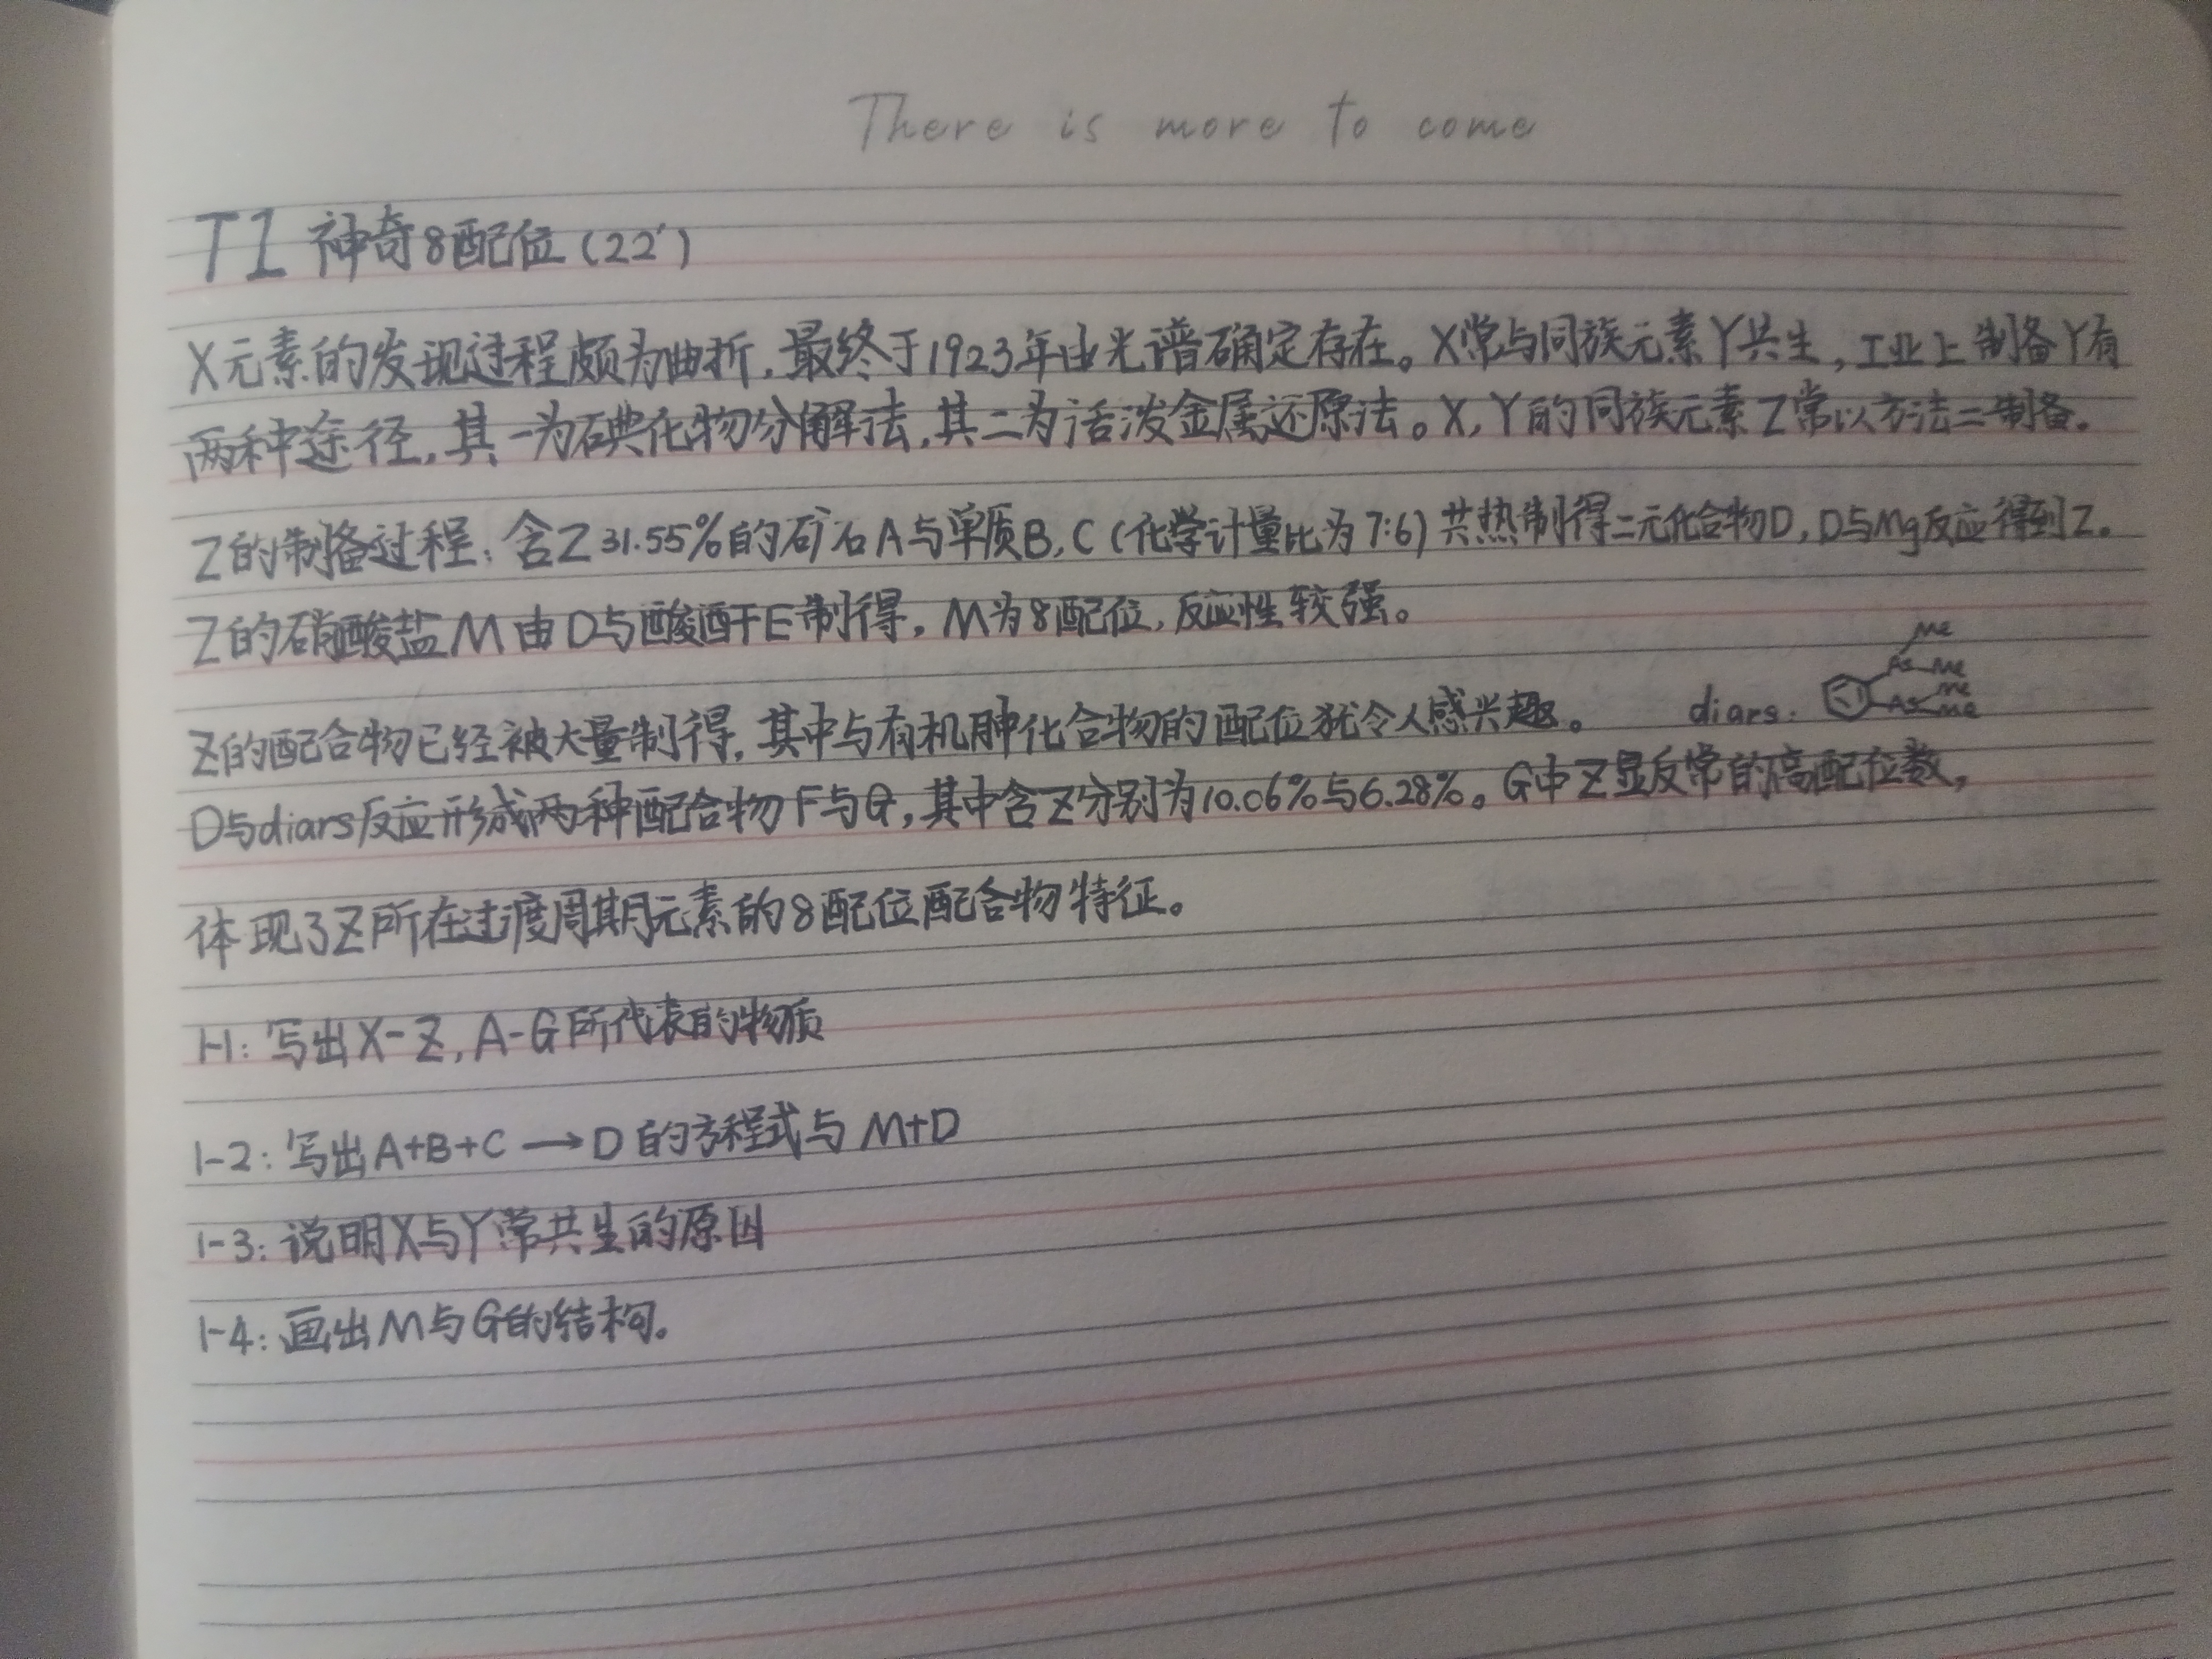 There is more to come
T1 神奇8配位(22')
X元素的发现过程颇为曲折,最终于1923年由光谱确定存在。X常与同族元素Y共生,工业上制备Y有
两种途径,其一为碘化物分解法,其二为活泼金属还原法。X,Y的同族元素Z常以方法二制备。
Z的制备过程:含Z 31.55%的矿石A与单质B,C(化学计量比为7:6)共热制得二元化合物D,D与Mg反应得到Z。
Z的硝酸盐M由D与酸酐E制得,M为8配位,反应性较强。
Z的配合物已经被大量制得,其中与有机胂化合物的配位犹令人感兴趣。 diars: Me As-Me As Me Me
D与diars反应形成两种配合物F与G,其中含Z分别为10.06%与6.28%。G中Z显反常的高配位数,
体现了Z所在过渡周期元素的8配位配合物特征。
1-1:写出X-Z,A-G所代表的物质
1-2:写出A+B+C→D的方程式与M+D
1-3:说明X与Y常共生的原因
1-4:画出M与G的结构。